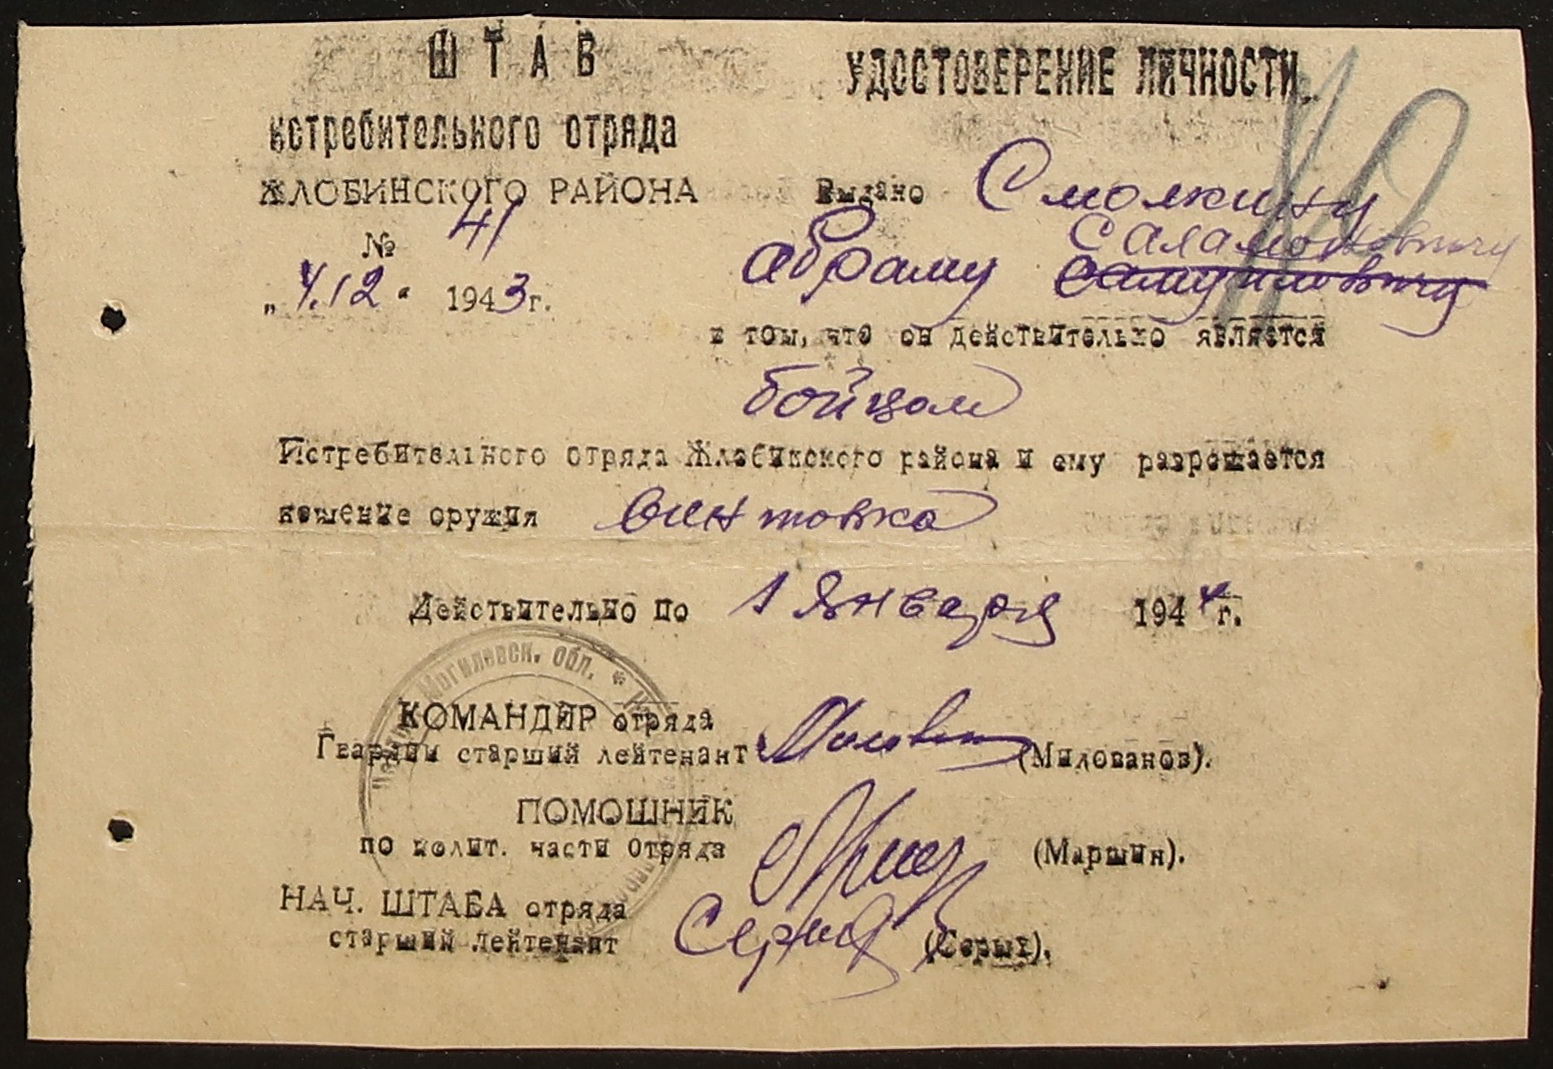 ШТАБ
истребительного отряда
ЖЛОБИНСКОГО РАЙОНА
№ 41
„4.12“ 1943г.
УДОСТОВЕРЕНИЕ ЛИЧНОСТИ
Выдано Смолкину
Абраму Саламоновичу
Самуиловичу
в том, что он действительно является
бойцом
Истребительного отряда Жлобинского района и ему разрешается
ношение оружия винтовка
Действительно по 1 января 1944г.
Могилевск. обл. *
КОМАНДИР отряда
Гвардии старший лейтенант (Милованов).
ПОМОШНИК
по полит. части отряда (Маршин).
НАЧ. ШТАБА отряда
старший лейтенант Серых (Серых).